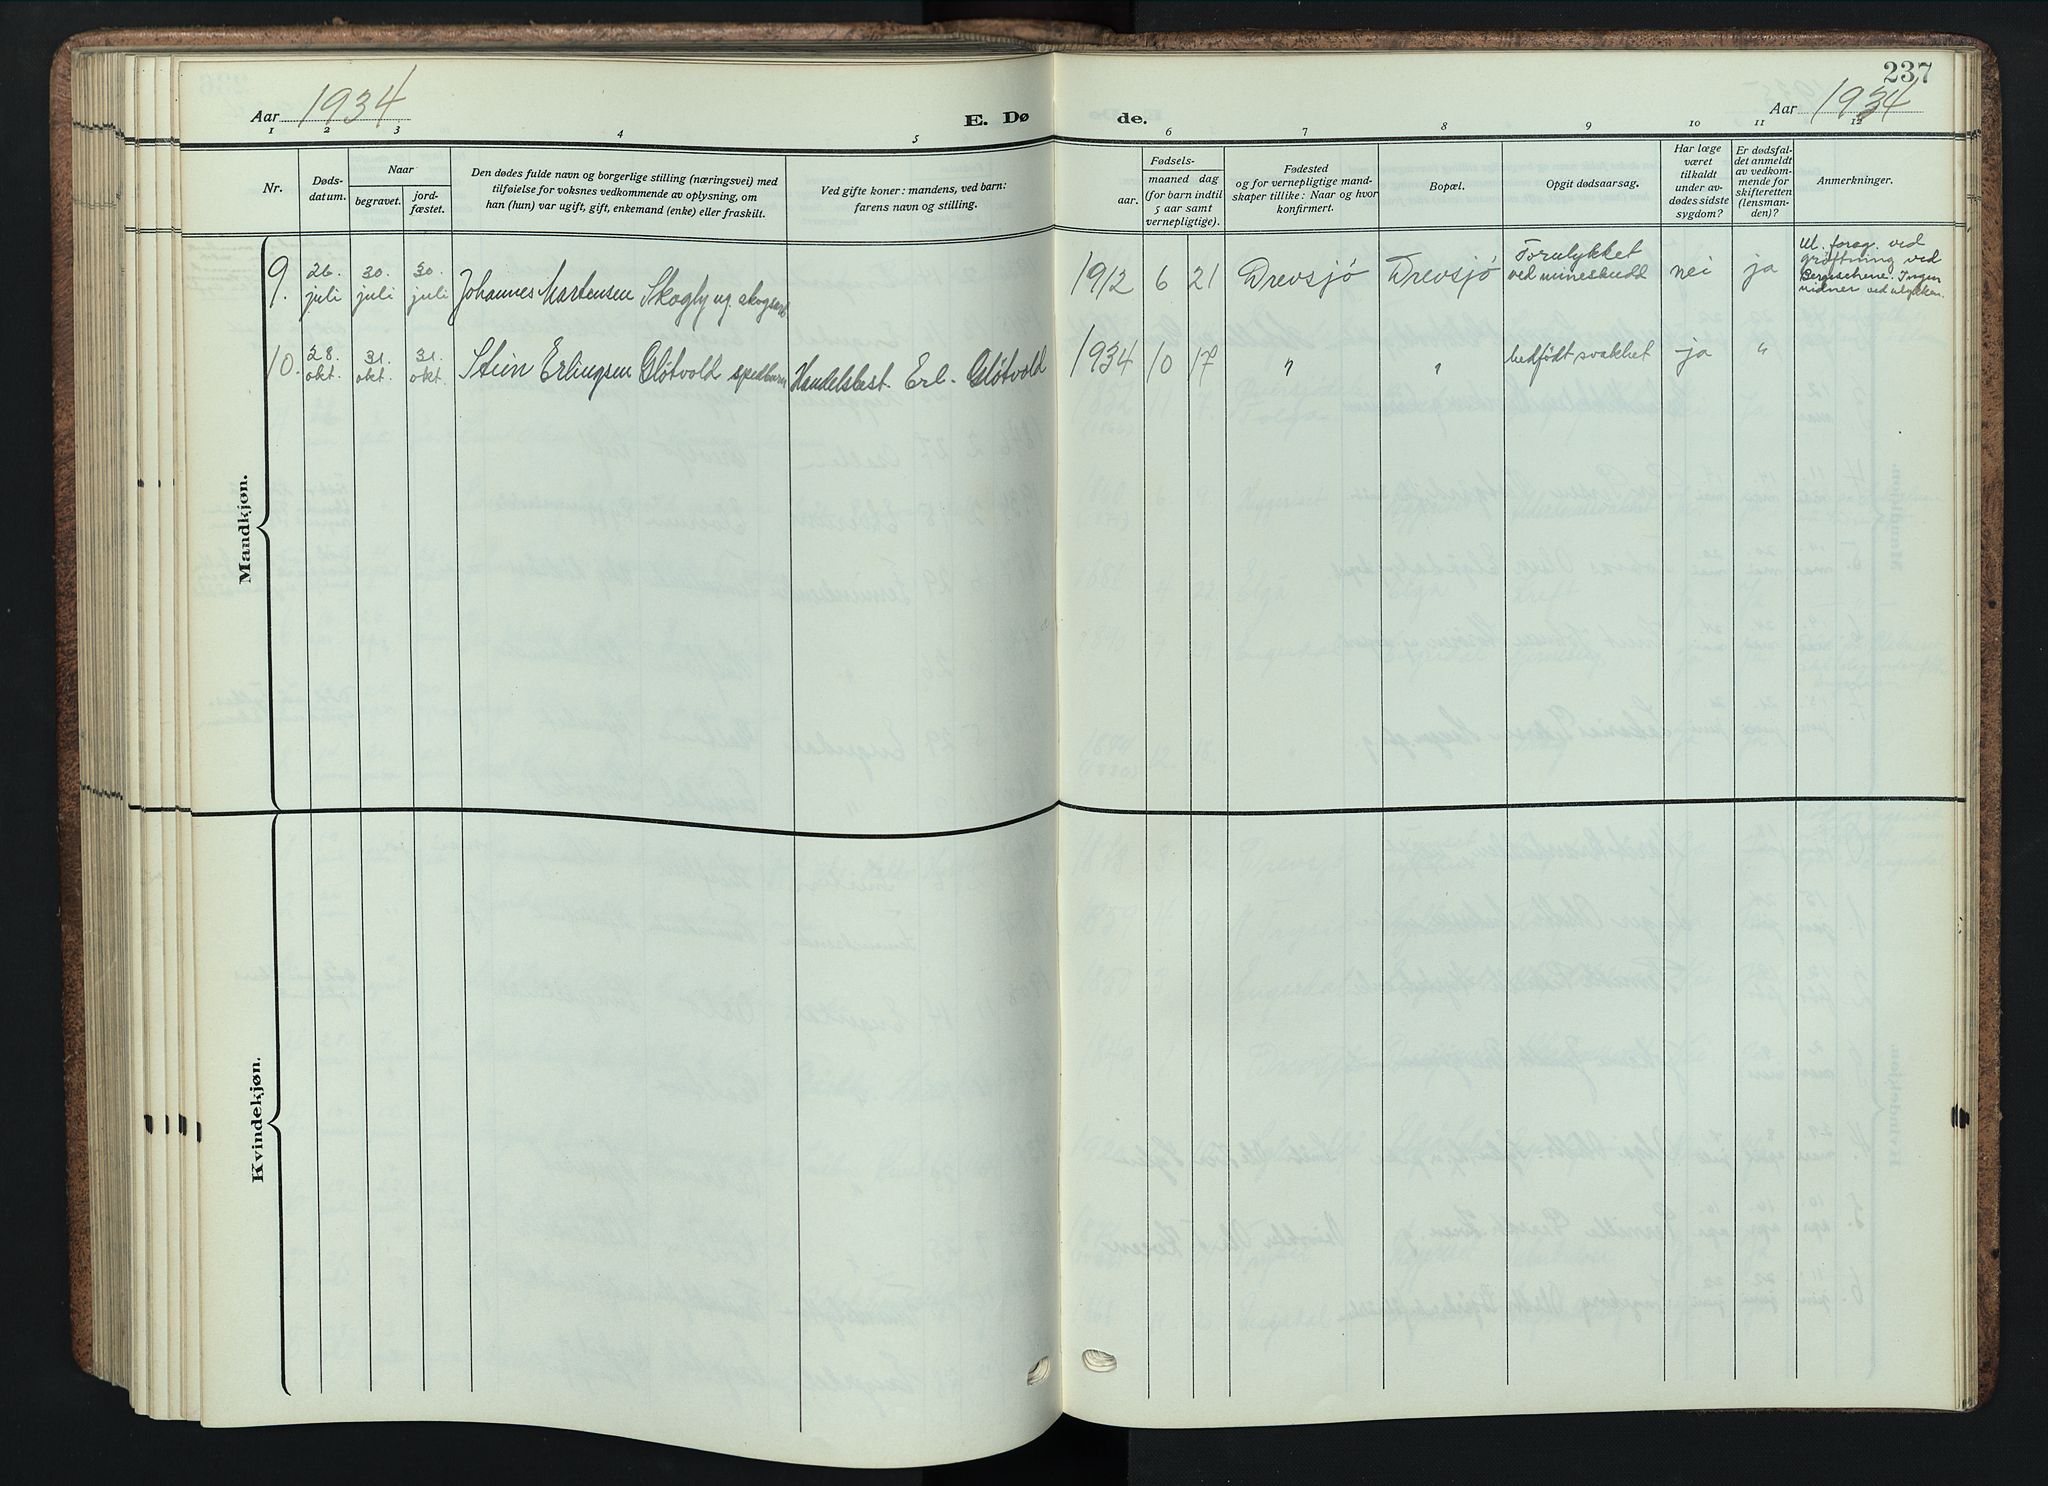 237
Aar 1934
E. Dø
de.
Aar 1934
1 2 3 4 5 6 7 8 9 10 11 12
Nr.
Døds-
datum.
Naar
begravet.
jord-
fæstet.
Den dødes fulde navn og borgerlige stilling (næringsvei) med
tilføielse for voksnes vedkommende av oplysning, om
han (hun) var ugift, gift, enkemand (enke) eller fraskilt.
Ved gifte koner: mandens, ved barn:
farens navn og stilling.
Fødsels-
aar.
maaned dag
(for barn indtil
5 aar samt
vernepligtige).
Fødested
og for vernepligtige mand-
skaper tillike: Naar og hvor
konfirmert.
Bopæl.
Opgit dødsaarsag.
Har læge
været
tilkaldt
under av-
dødes sidste
sygdom?
Er dødsfal-
det anmeldt
av vedkom-
mende for
skifteretten
(lensman-
den)?
Anmerkninger.
Mandkjøn.
9. 26. juli 30. juli 30. juli Johannes Martensen Skogby ug. skogsarb. 1912 6 21 Drevsjø Drevsjø Forulykket
ved mineskudd nei ja Ul. foreg. ved
grøftning ved
Ingen
vidner ved ulykken.
10. 28. okt. 31. okt. 31. okt. Stein Erlingsen Gløtvold spedbarn Handelsbest. Erl. Gløtvold 1934 10 17 " " medfødt svakhet ja "
Kvindekjøn.